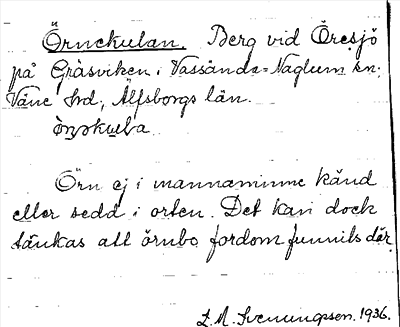 Örnekulan. Berg vid Öresjö
på Gräsviken i Vassända-Naglum sn;
Väne hd, Älfsborgs län.
Örn ej i mannaminne känd
eller sedd i orten. Det kan dock
tänkas att örnbo fordom funnits där.
L. M. Svenungsson. 1936.